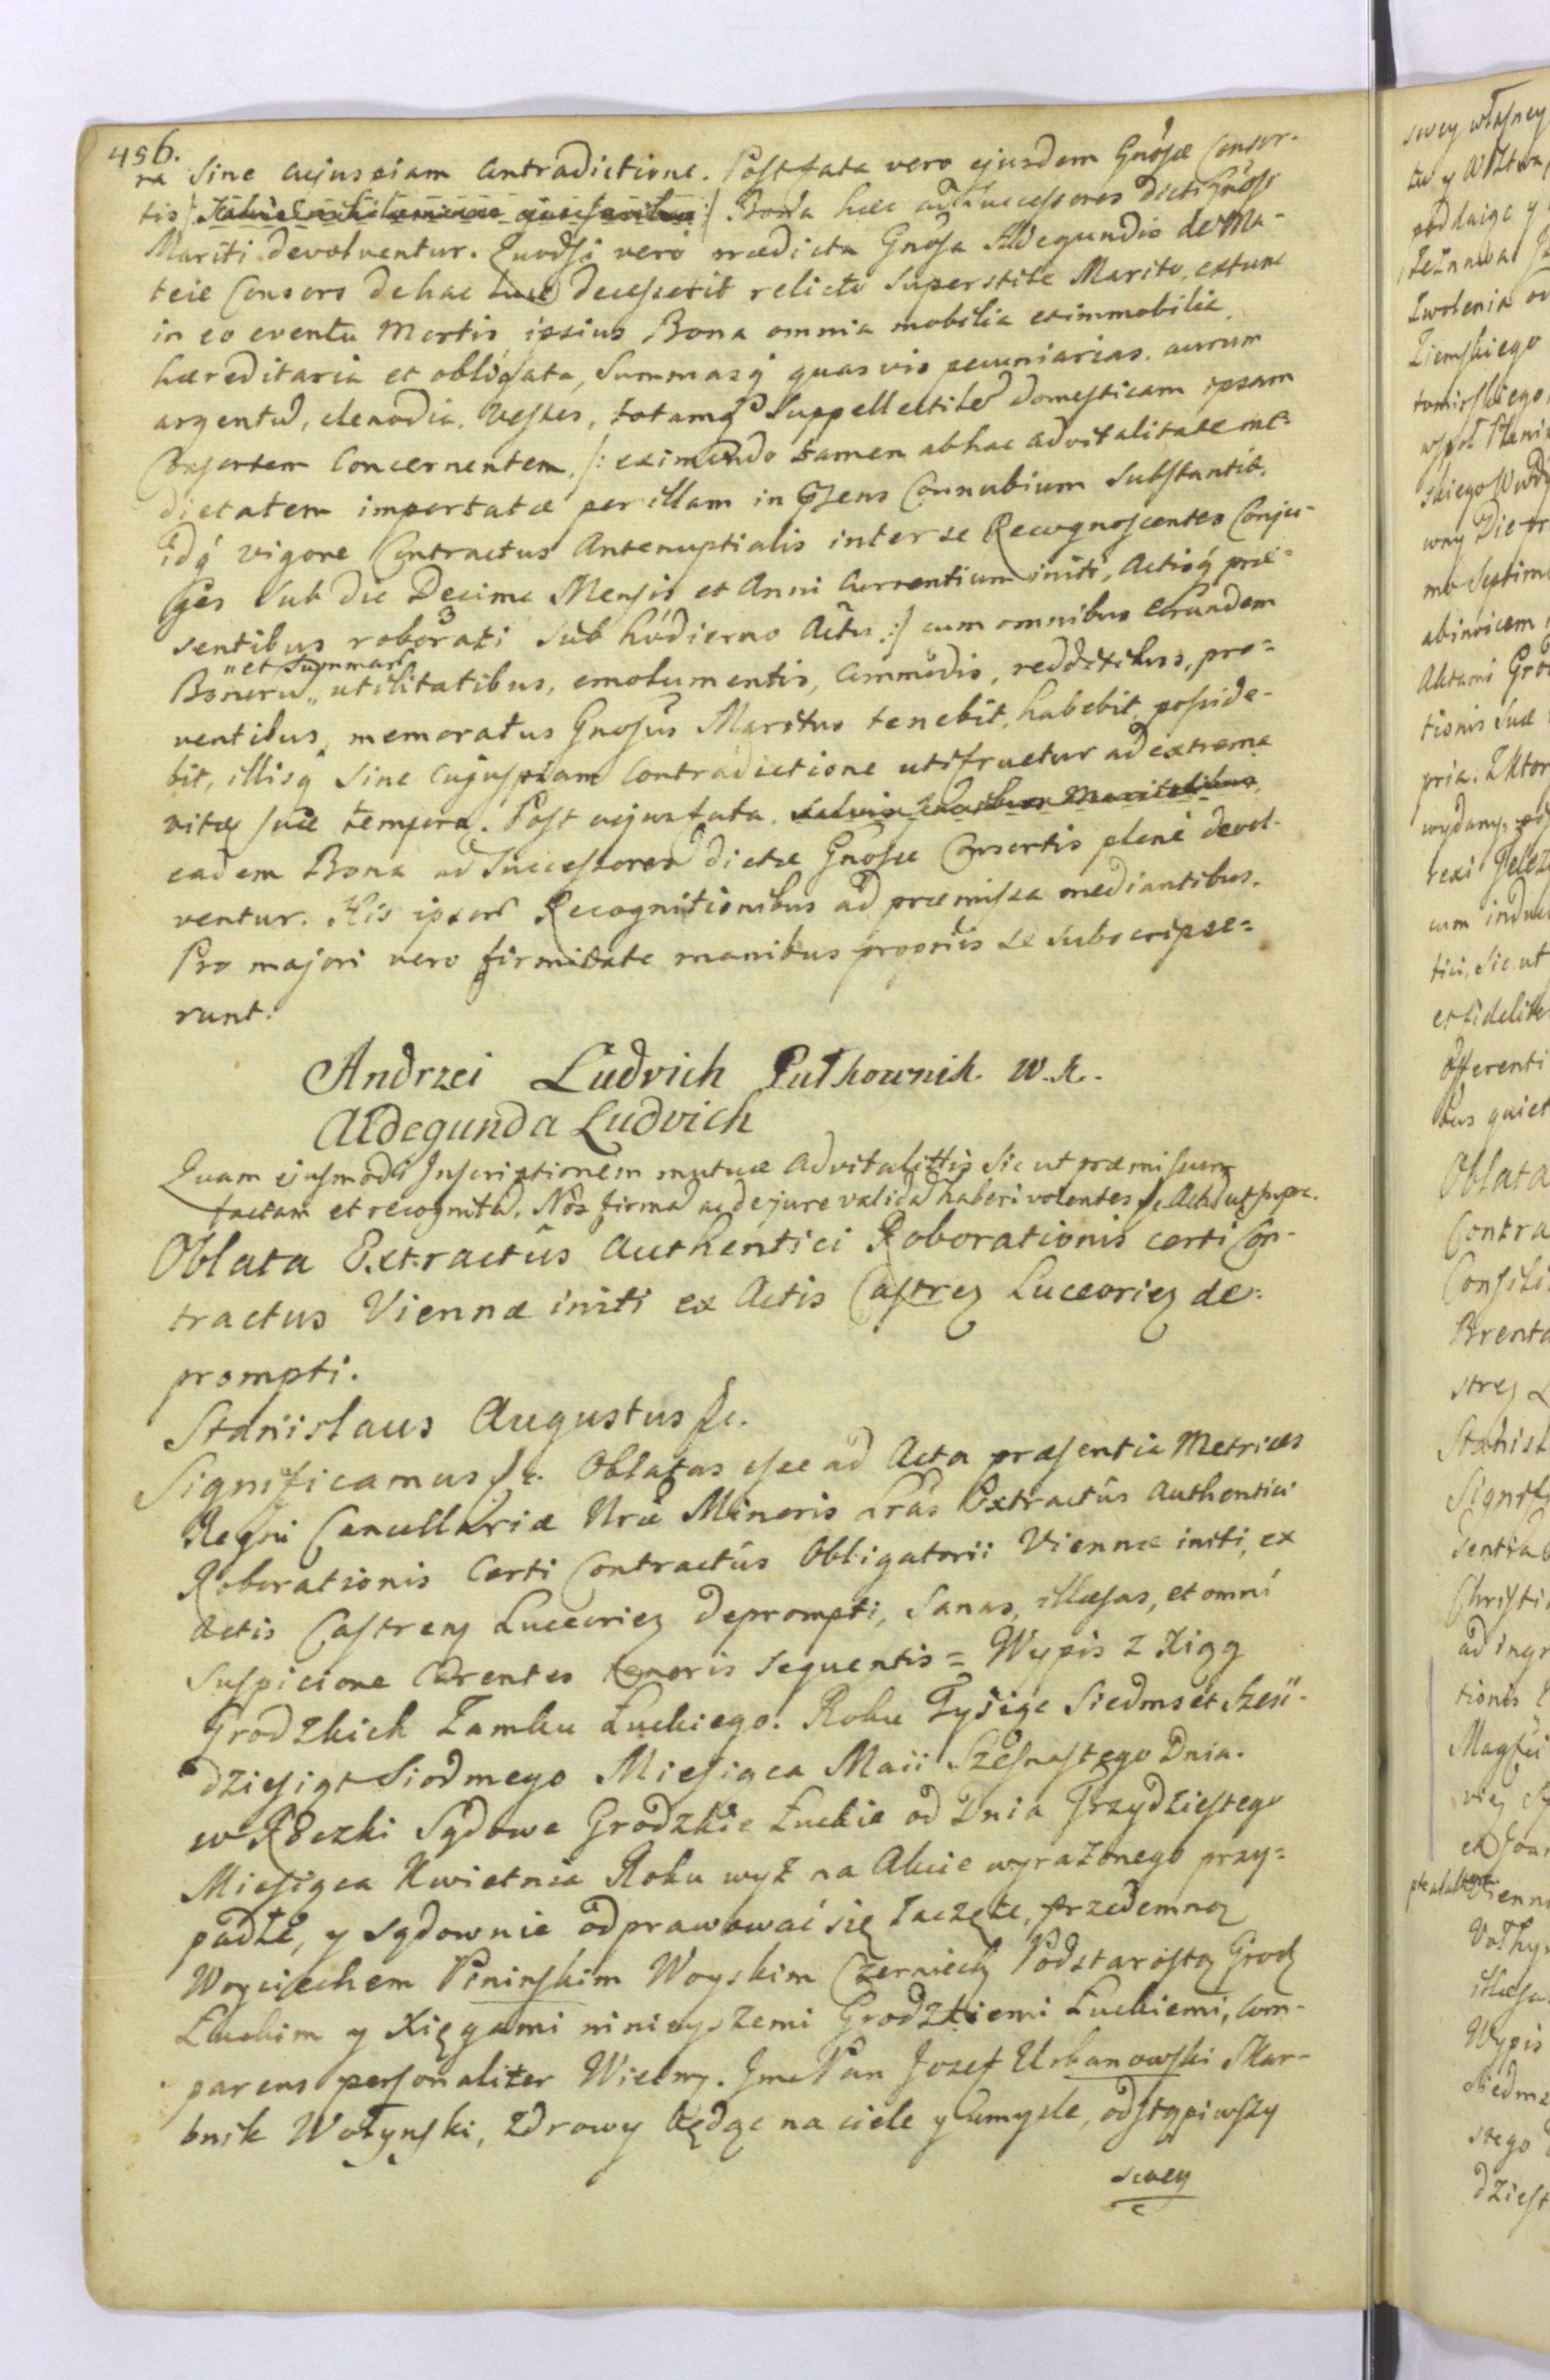 456.
ra Sine cujuspiam Contradictione. Post fata vero ejusdem Gnosæ Consor-
tis Bona hæc ad Successores dicti Gnosi
Mariti devolventur. Quodsi vero prædicta Gnosa Aldegundis de Ma-
teie Consors de hac luce decesserit relicto Superstite Marito, extunc
in eo eventu Mortis ipsius Bona omnia mobilia et immobilia,
hæreditaria et obligata, Summasq̃ quasvis pecuniarias, aurum
argentũ, clenodia, vestes, totamq̃ Suppellectilẽ domesticam ipsam
Consortem Concernentem, /: eximendo tamen ab hac advitalitate me-
dietatem importatæ per illam in Præsens Connubium Substantiæ,
idq̃ vigore Contractus Antenuptialis inter se Recognoscentes Conju-
ges sub die Decima Mensis et Anni Currentium initi, Actisq̃ præ-
sentibus roborati sub hodierno Actu :/ cum omnibus Eorundem
Bonorũ „et Summarũ„ utilitatibus, emolumentis, Commodis, redditibus, pro-
ventibus, memoratus Gnosus Maritus tenebit, habebit, posside-
bit, illisq̃ Sine Cujuspiam Contradictione utifruetur ad extrema
vitæ suæ tempora. Post cujus fata,
eadem Bona ad Successores dictæ Gnosæ Consortis plenè devol-
ventur. His ipsorũ Recognitionibus ad præmissa mediantibus.
Pro majori vero firmitate manibus propriis se subscripse-
runt.
Andrzei Ludvich Pułkownik W. K.
Aldegunda Ludvich
Quam ejusmodi Inscriptionem mutuæ Advitalittis Sic ut præmissum
factam et recognitã, Nos firmã ac de jure validã haberi volentes &c. Actũ ut supra.
Oblata Extractûs Authentici Roborationis certi Con-
tractus Viennæ initi ex Actis Castreñ Luceorieñ de-
prompti.
Stanislaus Augustus &c.
Significamus &c. Oblatas esse ad Acta præsentia Metrices
Regni Cancellariæ Nræ Minoris Lras Extractûs Authentici
Roborationis Certi Contractûs Obligatorii Viennæ initi, ex
Actis Castreñ Luceorieñ deprompti, Sanas, illæsas, et omni
Suspicione Carentes tenoris sequentis = Wypis z Xiąg
Grodzkich Zamku Łuckiego. Roku Tysiąc Siedmset Sześć-
dziesiąt Siodmego Miesiąca Maii Szesnastego Dnia.
w Roczki Sądowe Grodzkie Łuckie od Dnia Trzydziestego
Miesiąca Kwietnia Roku wyż na Akcie wyrażonego przy-
padłe, y sądownie odprawować się zaczęte, przedemną
Woyciechem Pininskim Woyskim Czerniech Podstarostą Grodz
Łuckim y Xięgami ninieyszemi Grodzkiemi Łuckiemi, com-
parens personaliter Wielmż. Jmc Pan Jozef Urbanowski Skar-
bnik Wołynski, zdrowy będąc na ciele y Umysle, odstąpiwszy
swey
swey własney
podlaiąc y
Zwolenia
Ziemskiego
abinvicem
Aktami
tionis suæ
wydany,
tici, Sic ut
et fidelite
Offerenti
Oblata
Contra
Signif
Christi
ad ingr
tionis
Wypis
Siedms
dziest